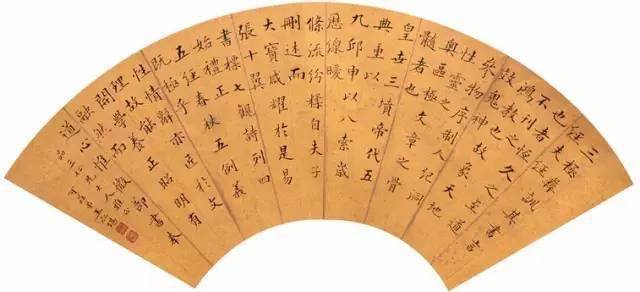 三極彝訓其書言
經也者
恒久之至道
不刊之
鴻教也故象天地
效鬼神
參物序制人紀洞
性靈之
奧區極文章之骨
髓者也
皇世三墳帝代五
典重以
九邱申以八索歲
歷緜曖
條流紛糅自夫子
刪述而
大寶咸耀於是易
張十翼
書標七觀詩列四
始禮正
五經春秋五例義
既極乎
性情辭亦匠於文
理故能
開學養正昭明有
融然而
道心惟微
仁兄大人雅正